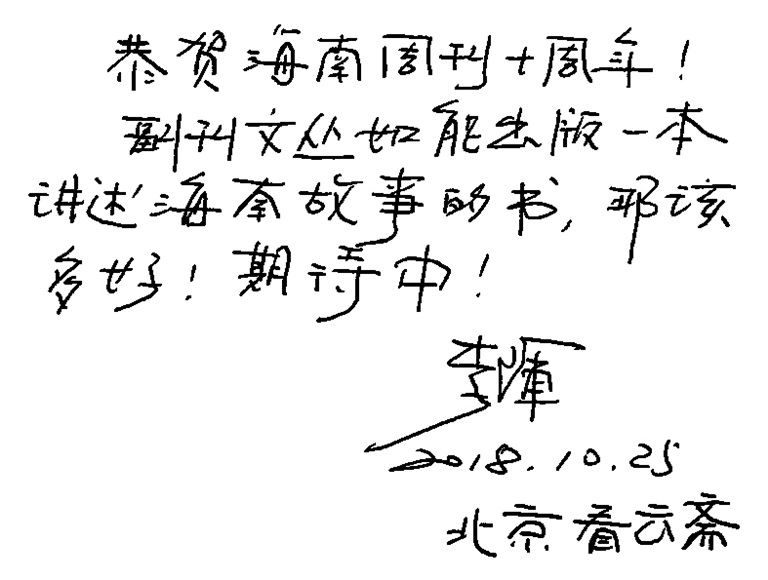 恭贺海南周刊十周年！
副刊文丛如能出版一本
讲述海南故事的书，那该
多好！期待中！
李辉
2018.10.25
北京看云斋